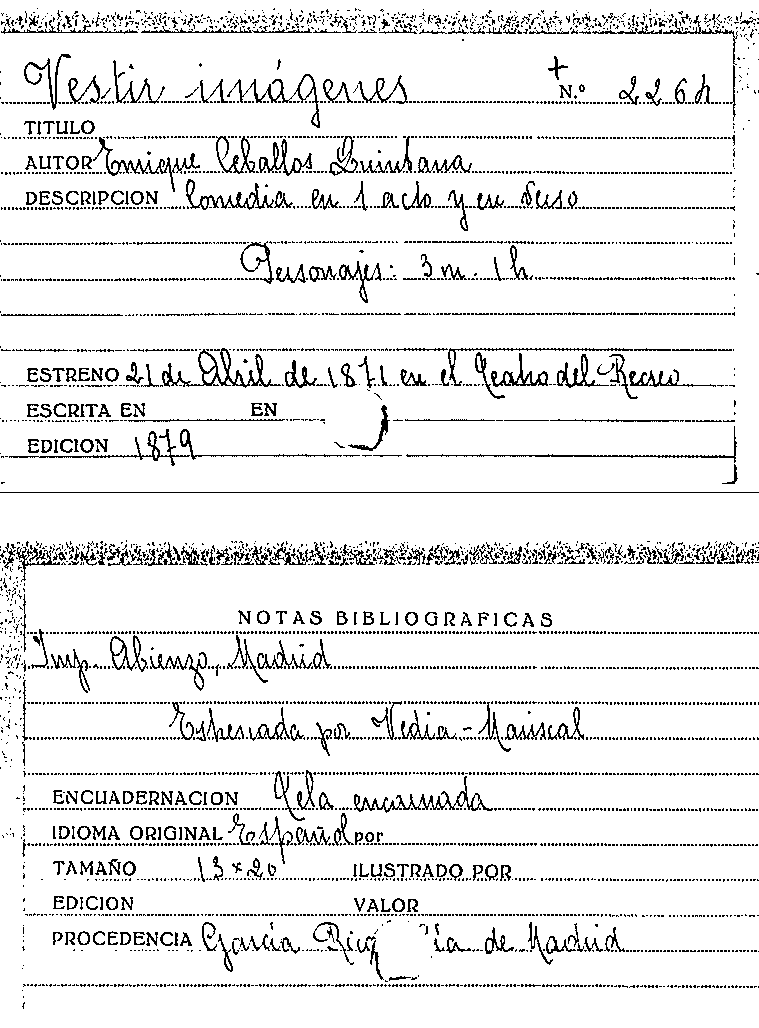 Vestir imágenes + N.º 2264
TITULO
AUTOR Enrique Ceballos Quintana
DESCRIPCION Comedia en 1 acto y en verso
Personajes: 3 m. 1 h.
ESTRENO 21 de Abril de 1871 en el Teatro del Recreo
ESCRITA EN EN
EDICION 1879
NOTAS BIBLIOGRAFICAS
Imp. Abienzo, Madrid
Estrenada por Vedia - Mariscal
ENCUADERNACION Tela encarnada
IDIOMA ORIGINAL Español por
TAMAÑO 13 x 20 ILUSTRADO POR
EDICION VALOR
PROCEDENCIA García de Madrid